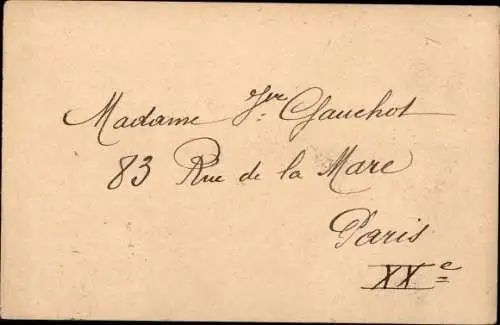 Madame Jve Gauchot
83 Rue de la Mare
Paris
XXe